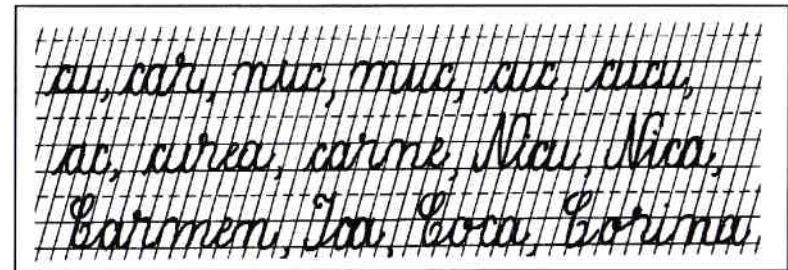 cu, car, nuc, muc, cuc, cucu,
ac, curea, carne, Nicu, Nica,
Carmen, Ica, Coca, Corina